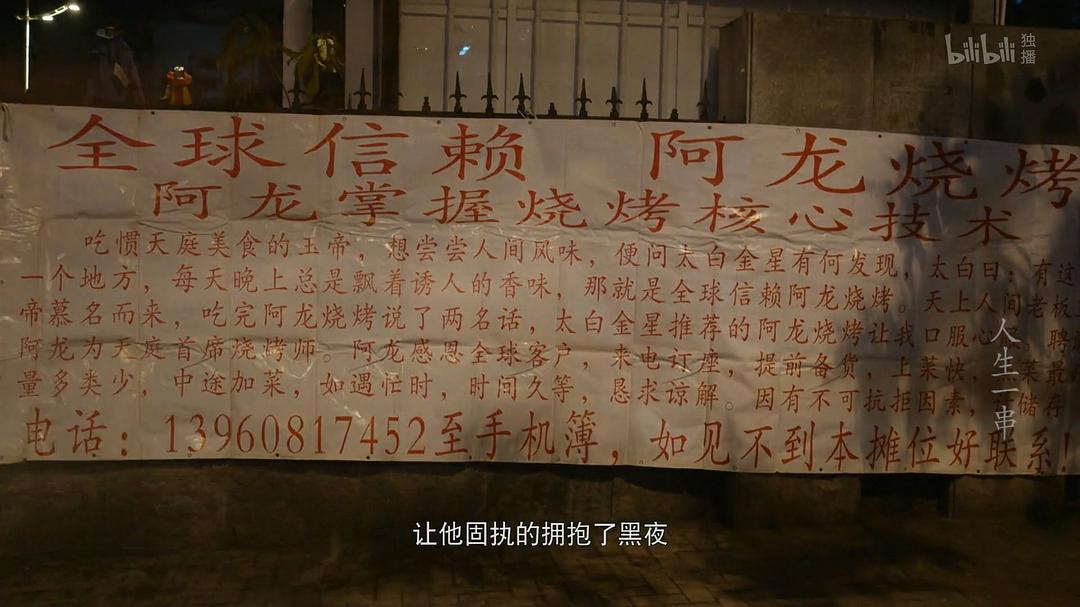 bilibili 独播
全球信赖 阿龙烧烤
阿龙掌握烧烤核心技术
吃惯天庭美食的玉帝，想尝尝人间风味，便问太白金星有何发现，太白曰：有这
一个地方，每天晚上总是飘着诱人的香味，那就是全球信赖阿龙烧烤。天上人间老板
帝慕名而来，吃完阿龙烧烤说了两名话，太白金星推荐的阿龙烧烤让我口服心 聘
阿龙为天庭首席烧烤师。阿龙感恩全球客户，来电订座，提前备货，上菜快， 菜最
量多类少，中途加菜，如遇忙时，时间久等，恳求谅解。因有不可抗拒因素， 储存
电话：13960817452至手机簿，如见不到本摊位好联系！
人生一串
让他固执的拥抱了黑夜